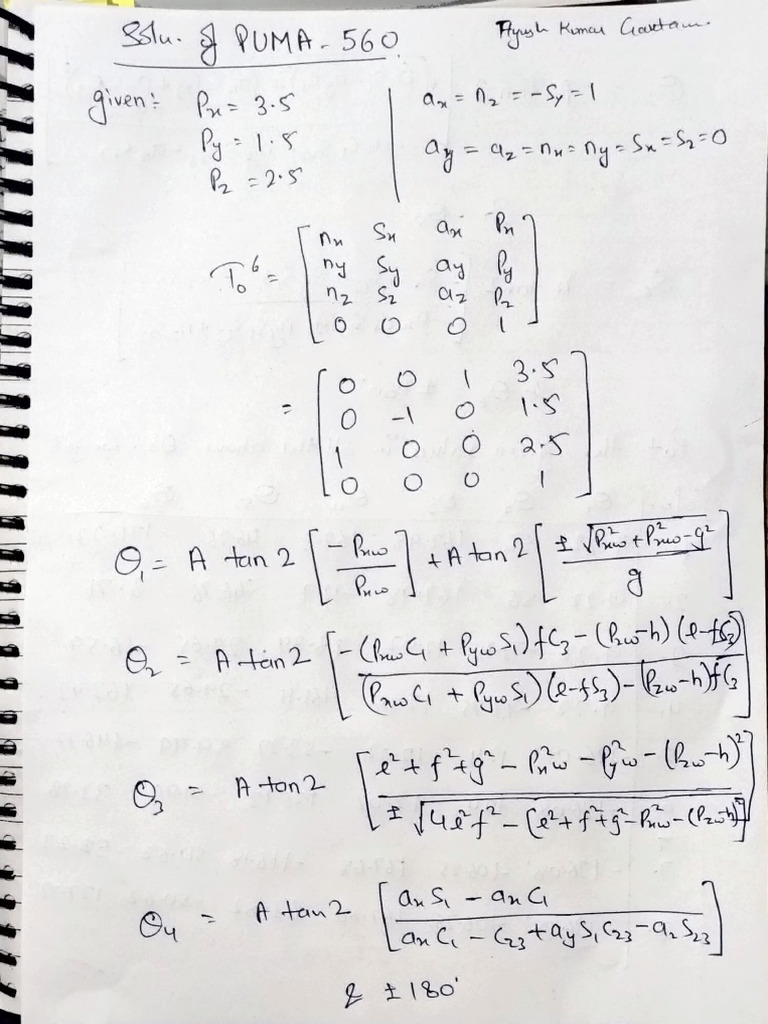 Solu. of PUMA-560
Ayush Kumar Gautam.
given:- Px = 3.5
Py = 1.5
Pz = 2.5
ax = nz = -Sy = 1
ay = az = nx = ny = Sx = Sz = 0
T₀⁶ = [ nx Sx ax Px
ny Sy ay Py
nz Sz az Pz
0 0 0 1 ]
= [ 0 0 1 3.5
0 -1 0 1.5
1 0 0 2.5
0 0 0 1 ]
θ₁ = A tan 2 [ -Pxw / Pxw ] + A tan 2 [ ± √(Pxw² + Pxw² - g²) / g ]
θ₂ = A tan 2 [ -(Pxw C₁ + Pyw S₁) f C₃ - (Pzw - h) (e - f S₃) / (Pxw C₁ + Pyw S₁) (e - f S₃) - (Pzw - h) f C₃ ]
θ₃ = A tan 2 [ e² + f² + g² - Px²w - Py²w - (Pzw - h)² / ± √4e²f² - (e² + f² + g² - Pxw² - (Pzw - h)² ]
θ₄ = A tan 2 [ ax S₁ - ax C₁ / ax C₁ - C₂₃ + ay S₁ C₂₃ - az S₂₃ ]
& ± 180°